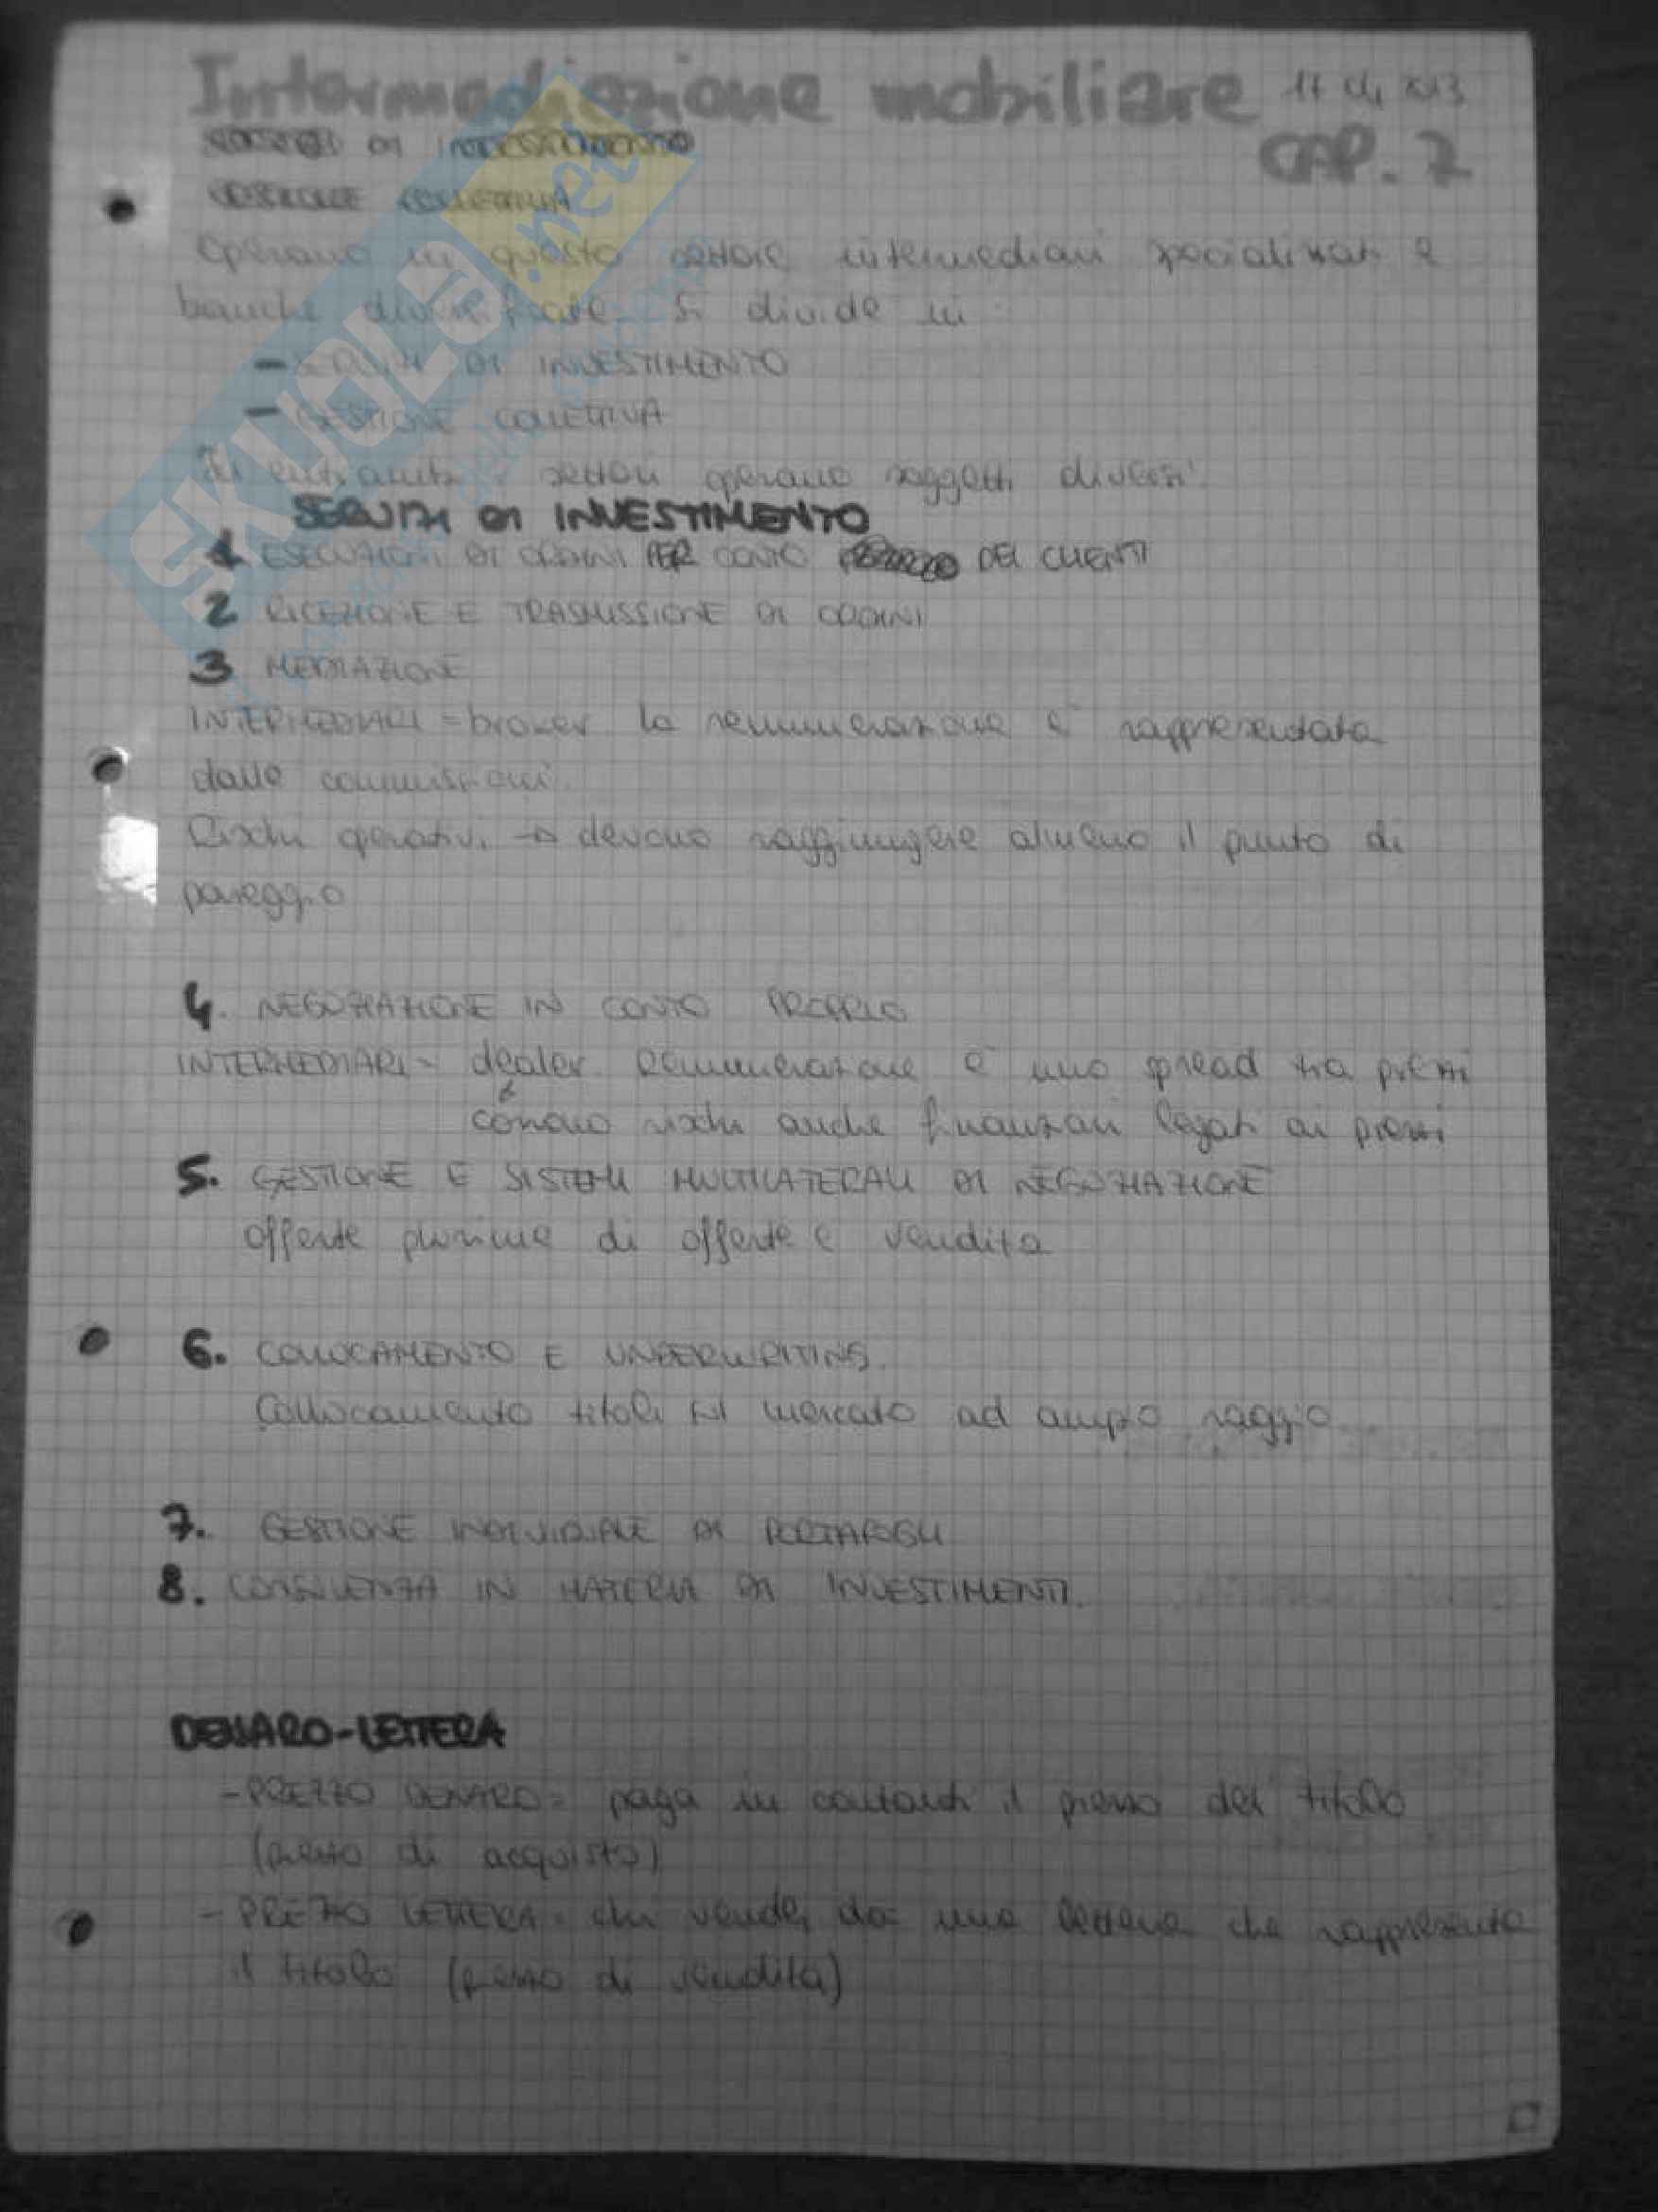 Intermediazione mobiliare
CAP. 7
SERVIZI DI INVESTIMENTO
GESTIONE COLLETTIVA
Operano in questo settore intermediari specializzati e
banche diversificate. Si divide in:
- SERVIZI DI INVESTIMENTO
- GESTIONE COLLETTIVA
In entrambi i settori operano soggetti diversi.
SERVIZI DI INVESTIMENTO
1 ESECUZIONI DI ORDINI PER CONTO DEI CLIENTI
2 RICEZIONE E TRASMISSIONE DI ORDINI
3 MEDIAZIONE
INTERMEDIARI = broker la remunerazione è rappresentata
dalle commissioni.
Rischi operativi → devono raggiungere almeno il punto di
pareggio
4. NEGOZIAZIONE IN CONTO PROPRIO
INTERMEDIARI = dealer remunerazione è uno spread tra prezzi
corrono rischi anche finanziari legati ai prezzi
5. GESTIONE E SISTEMI MULTILATERALI DI NEGOZIAZIONE
offerte plurime di offerte e vendita
6. COLLOCAMENTO E UNDERWRITING.
Collocamento titoli sul mercato ad ampio raggio
7. GESTIONE INDIVIDUALE DI PORTAFOGLI
8. CONSULENZA IN MATERIA DI INVESTIMENTI.
DENARO-LETTERA
- PREZZO DENARO = paga in contanti il prezzo del titolo
(prezzo di acquisto)
- PREZZO LETTERA = chi vende, dà una lettera che rappresenta
il titolo (prezzo di vendita)
SKUOLa.net